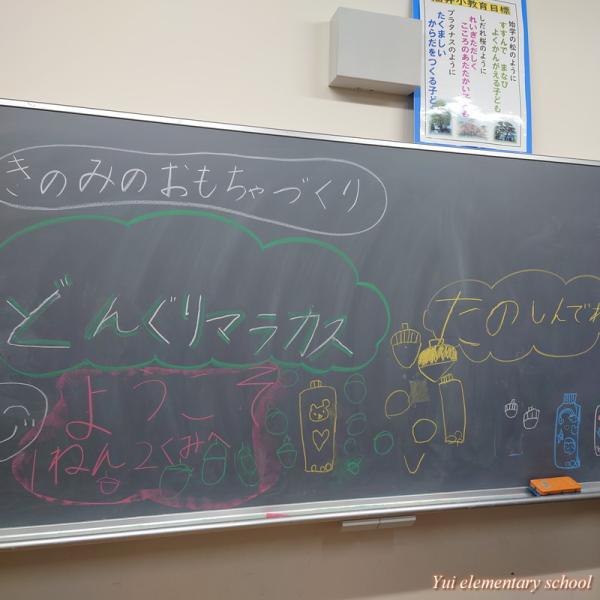 小教育目標
始学の松のように
すすんで まなび
よくかんがえる子ども
しだれ桜のように
れいぎただしく
こころのあたたかい子ども
プラタナスのように
たくましい
からだをつくる子ども
きのみのおもちゃづくり
どんぐりマラカス
たのしんでね
ようこそ
1ねん2くみへ
Yui elementary school